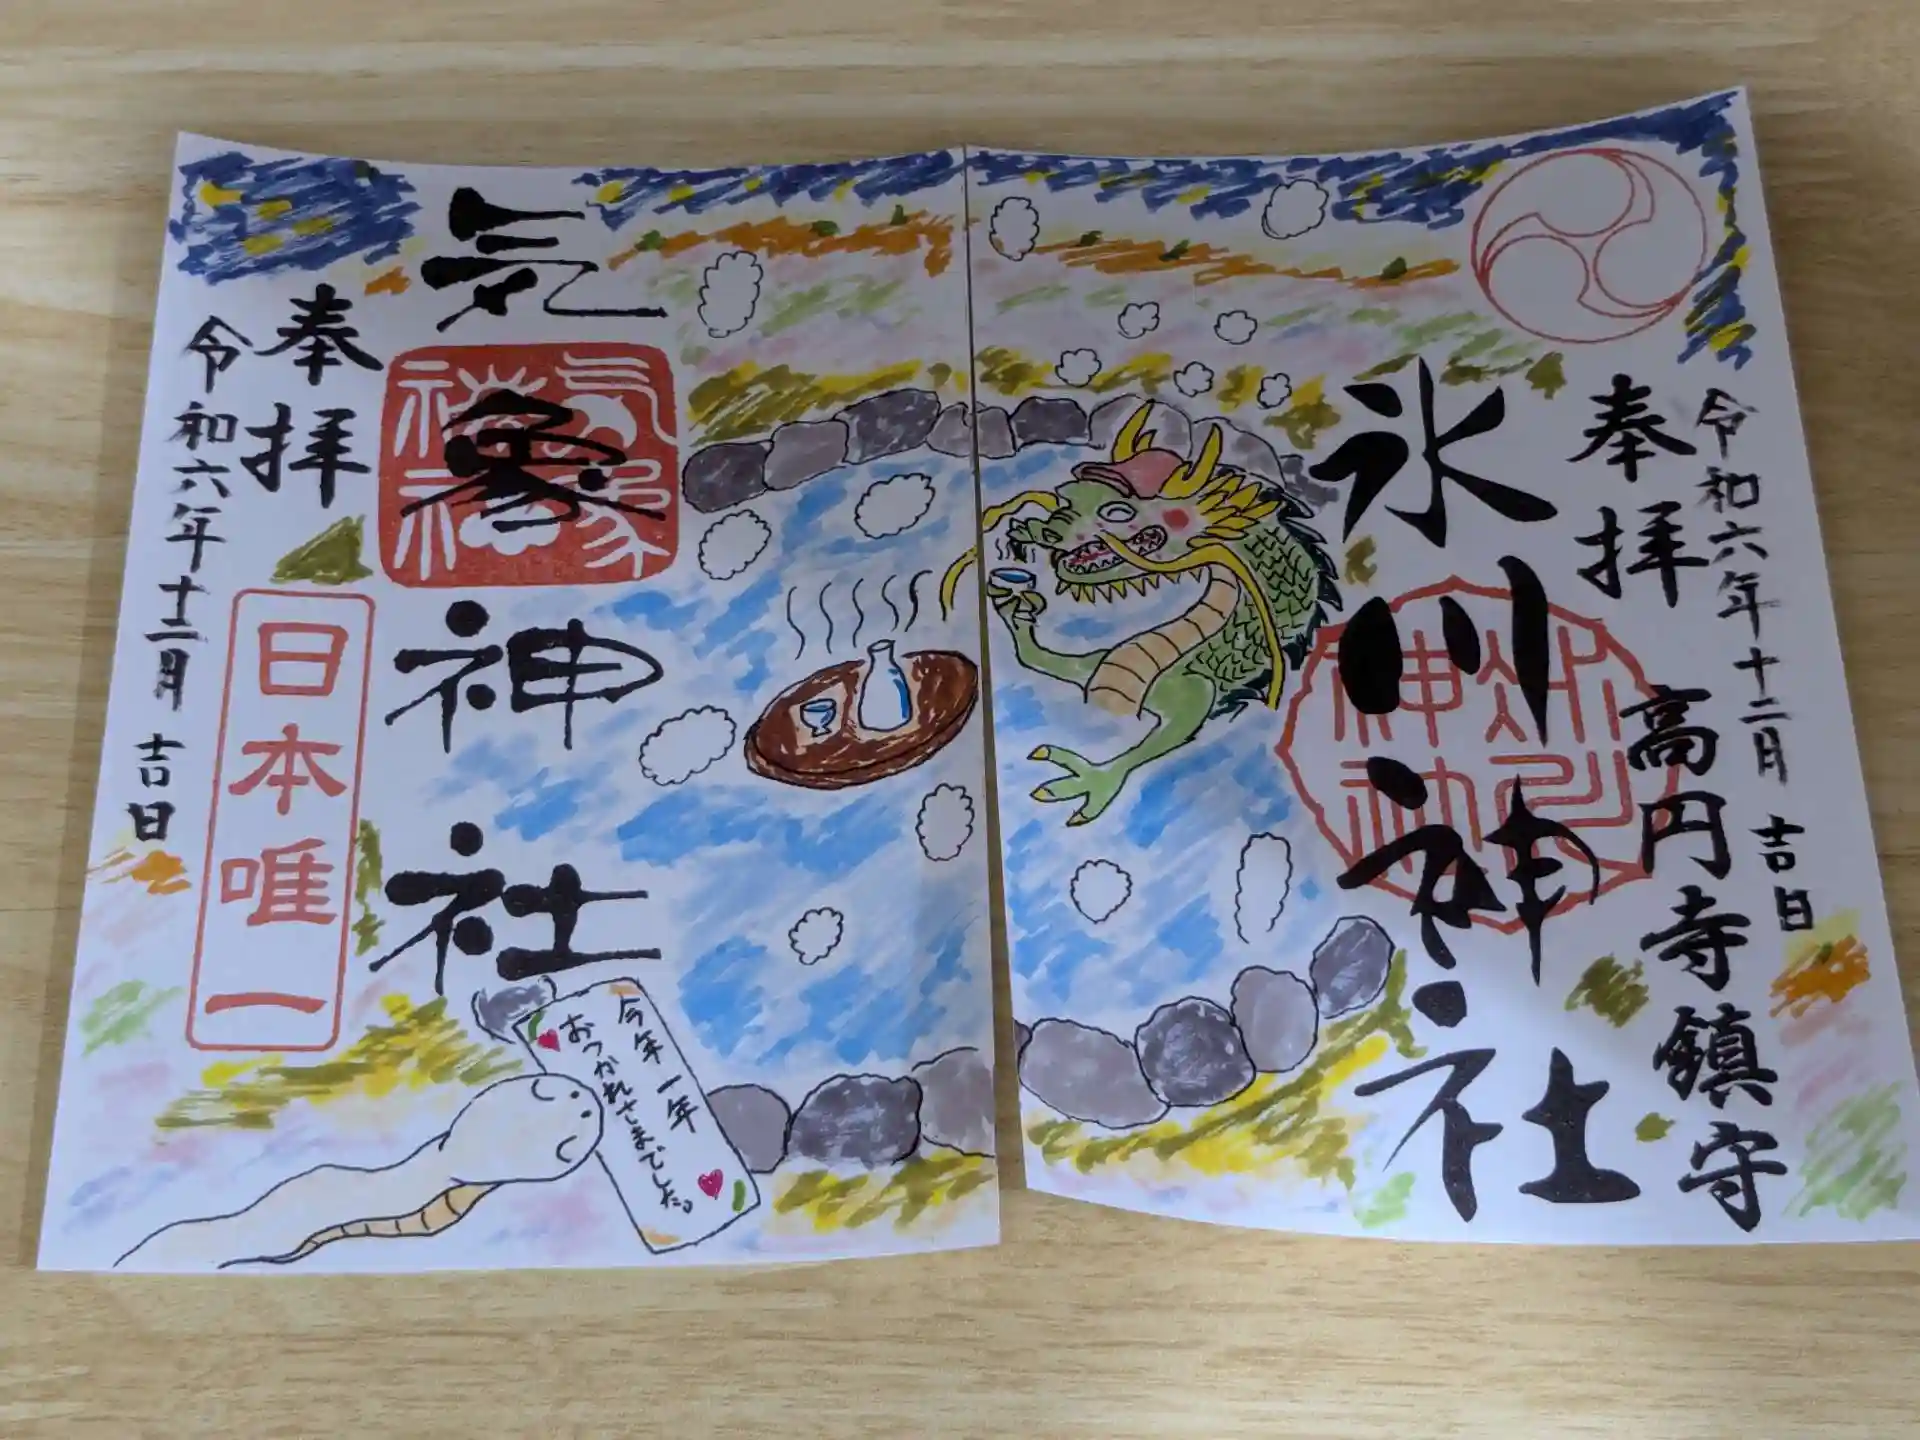 奉拝
令和六年十二月 吉日
高円寺鎮守
氷川神社
気象神社
気象神社
奉拝
令和六年十二月 吉日
日本唯一
今年一年
おつかれさまでした。